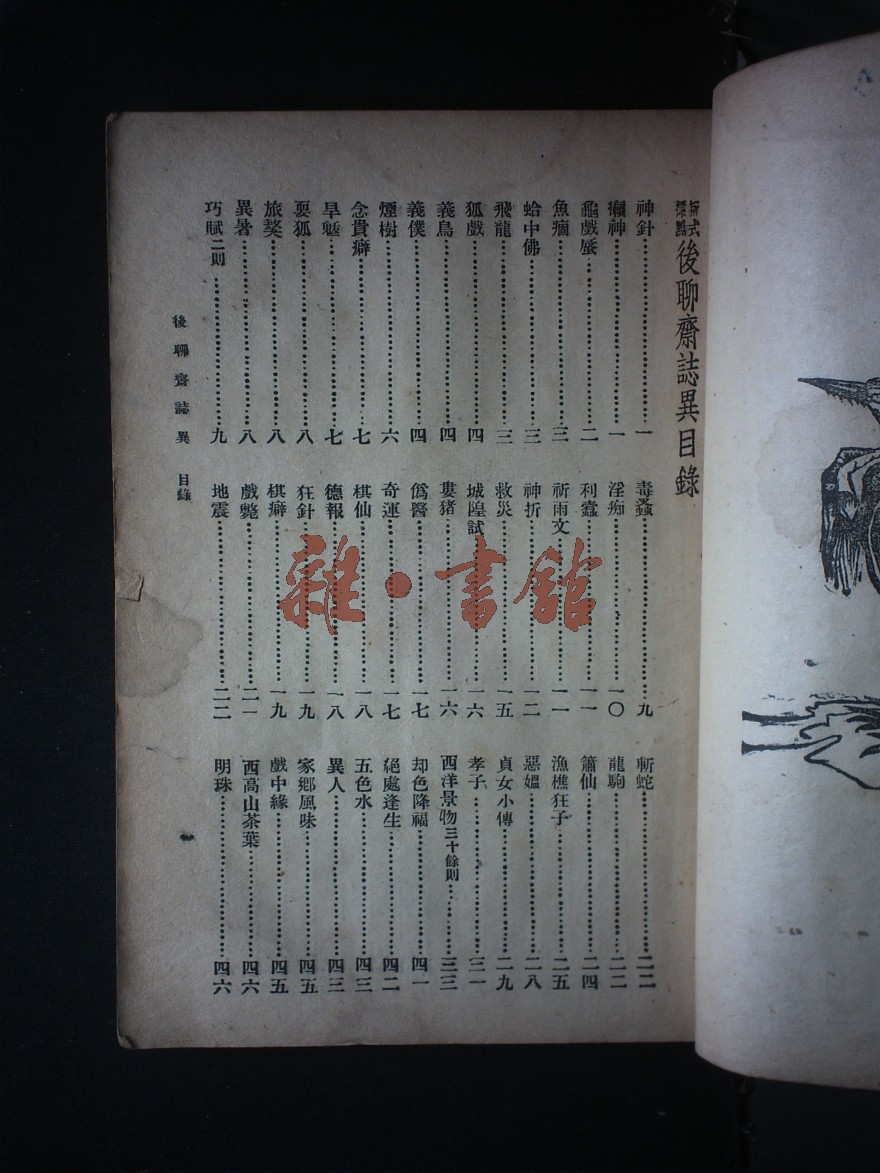 新式標點後聊齋誌異目錄
神針……一
獺神……一
龜戲蜃……二
魚癟……三
蛤中佛……三
飛龍……三
狐戲……四
義鳥……四
義僕……四
煙樹……六
念貴癖……七
旱魃……七
耍狐……八
旅獒……八
異暑……八
巧賦二則……九
毒蝨……九
淫痴……一〇
利蠹……一一
祈雨文……一一
神折……一二
救災……一五
城隍試……一六
婁猪……一六
僞醫……一七
奇運……一七
棋仙……一八
德報……一八
狂針……一九
棋癖……一九
戲斃……二一
地震……二二
斬蛇……二二
龍駒……二二
簫仙……二四
漁樵狂子……二五
惡媼……二八
貞女小傳……二九
孝子……三一
西洋景物三十餘則……三三
却色降福……四一
絕處逢生……四二
五色水……四三
異人……四三
家鄉風味……四五
戲中緣……四五
西高山茶葉……四六
明珠……四六
後聊齋誌異 目錄
雜·書館